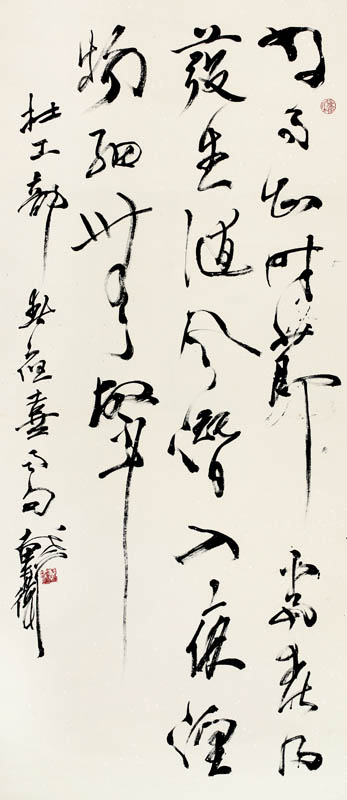 好雨知時節當春乃
發生隨風潛入夜潤
物細無聲
杜工部春夜喜雨句